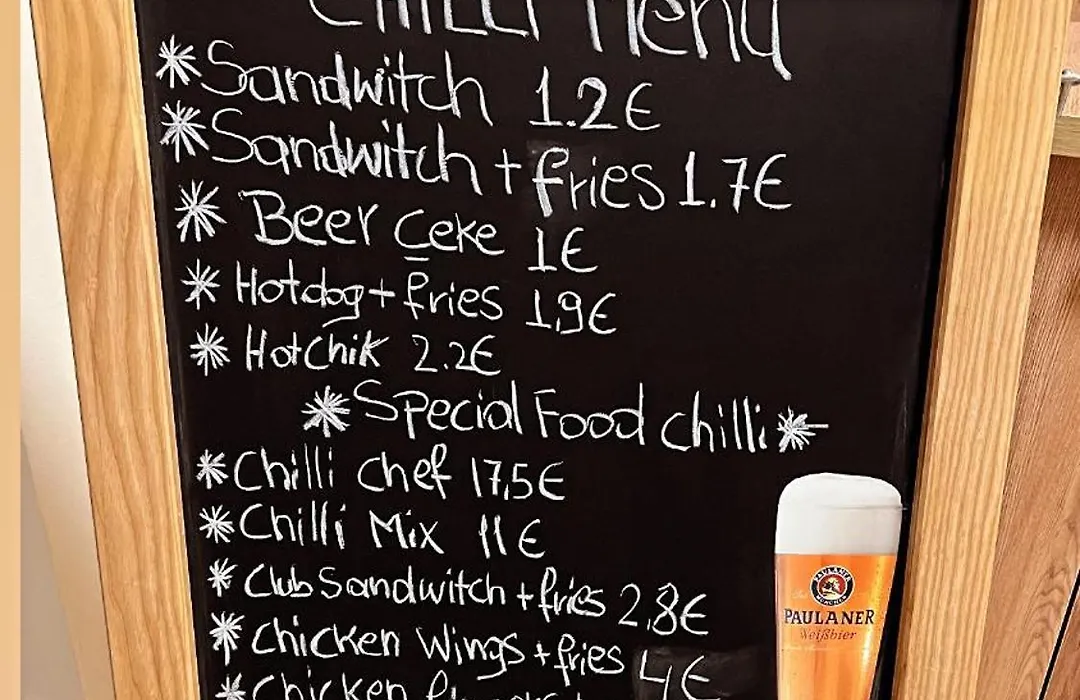 CHILLI Menu
*Sandwitch 1.2€
*Sandwitch + fries 1.7€
* Beer ceke 1€
* Hotdog + fries 1,9€
* Hotchik 2.2€
*Special Food chilli*
*Chilli chef 17,5€
*Chilli Mix 11€
*Club Sandwitch + fries 2,8€
*Chicken Wings + fries 4€
*Chicken
PAULANER
MÜNCHEN
PAULANER
Weißbier